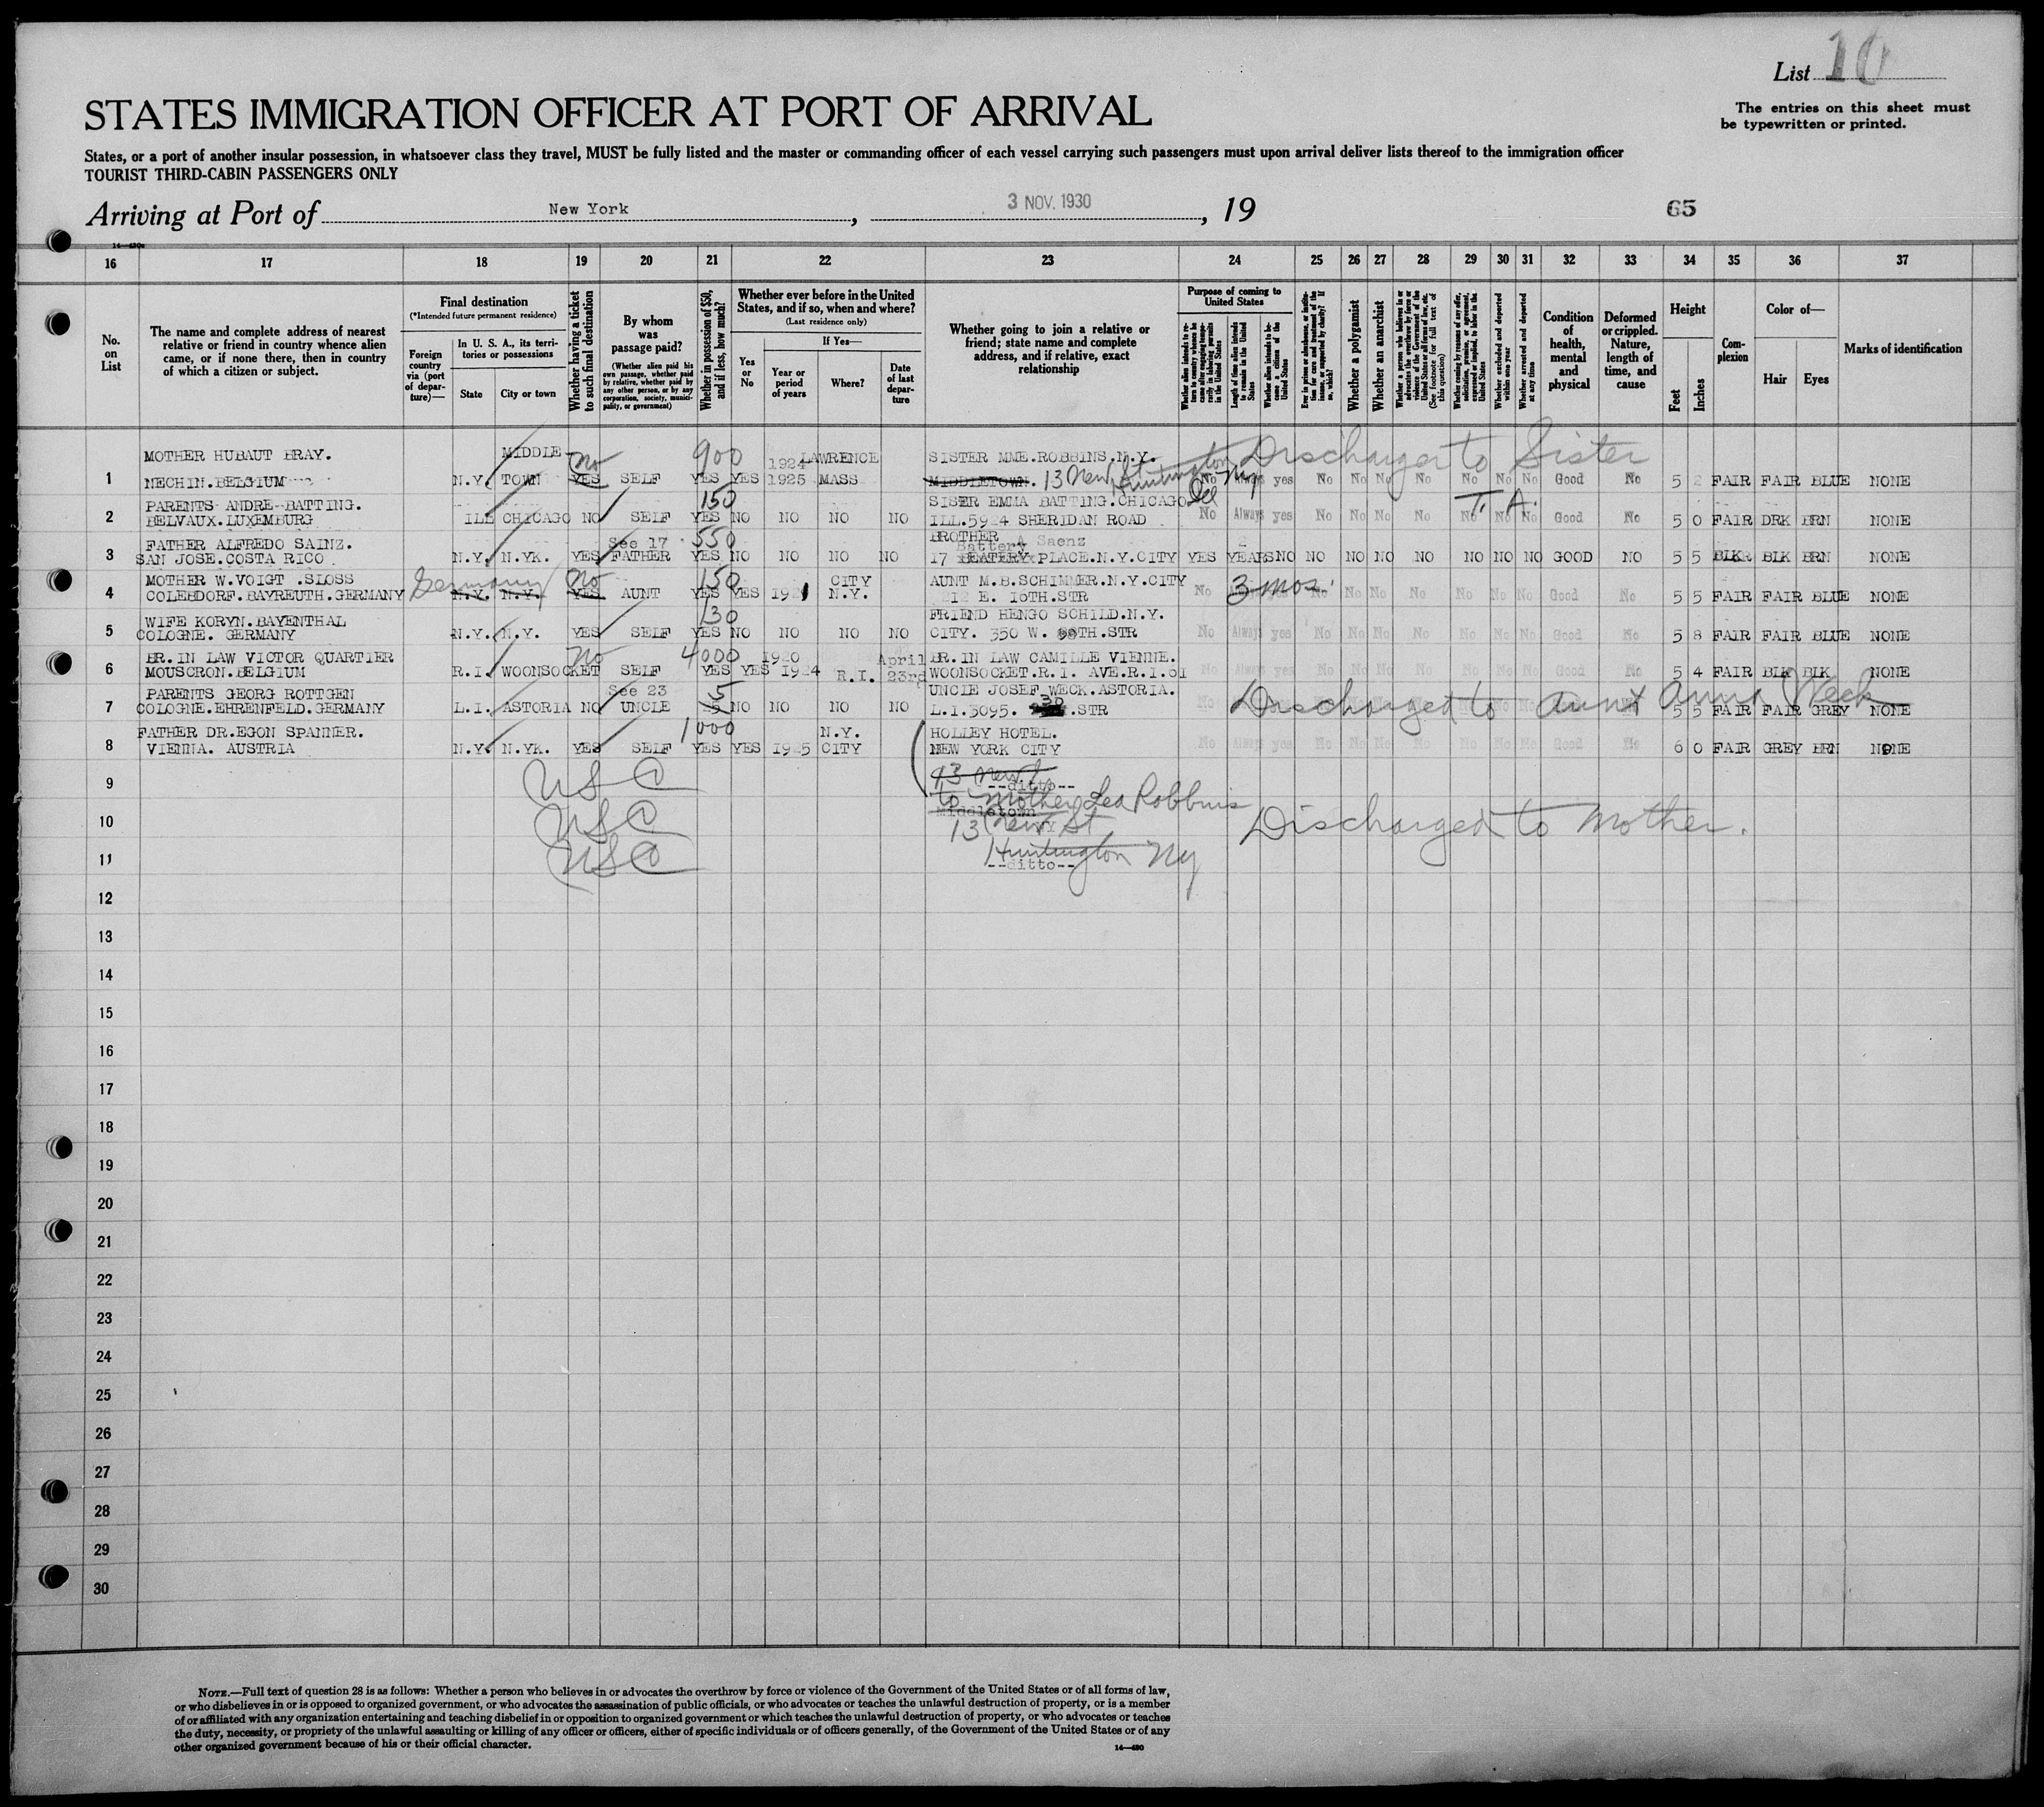 List 10
The entries on this sheet must
be typewritten or printed.
STATES IMMIGRATION OFFICER AT PORT OF ARRIVAL
States, or a port of another insular possession, in whatsoever class they travel, MUST be fully listed and the master or commanding officer of each vessel carrying such passengers must upon arrival deliver lists thereof to the immigration officer
TOURIST THIRD-CABIN PASSENGERS ONLY
Arriving at Port of New York, 3 NOV. 1930, 19 65
16 17 18 19 20 21 22 23 24 25 26 27 28 29 30 31 32 33 34 35 36 37
No. on List
The name and complete address of nearest relative or friend in country whence alien came, or if none there, then in country of which a citizen or subject.
Final destination
(*Intended future permanent residence)
Foreign country via (port of departure)—
In U. S. A., its territories or possessions
State
City or town
Whether having a ticket to such final destination
By whom was passage paid?
(Whether alien paid his own passage, whether paid by relative, whether paid by any other person, or by any corporation, society, municipality, or government)
Whether in possession of $50, and if less, how much?
Whether ever before in the United States, and if so, when and where?
(Last residence only)
Yes or No
If Yes—
Year or period of years
Where?
Date of last departure
Whether going to join a relative or friend; state name and complete address, and if relative, exact relationship
Purpose of coming to United States
Length of time alien intends to remain in the United States
Whether alien intends to become a citizen of the United States
Whether a polygamist
Whether an anarchist
Whether excluded and deported within one year
Whether arrested and deported at any time
Condition of health, mental and physical
Deformed or crippled. Nature, length of time, and cause
Height
Feet
Inches
Complexion
Color of—
Hair
Eyes
Marks of identification
MOTHER HUBAUT BRAY. MIDDLE no 900 1924 LAWRENCE SISTER MME.ROBBINS.N.Y. Discharged to Sister
1 NECHIN.BELGIUM N.Y. TOWN YES SELF YES YES 1925 MASS MIDDLETOWN. 13 New St Huntington Ny No Always yes No No No No No No No Good No 5 2 FAIR FAIR BLUE NONE
PARENTS ANDRE BATTING. 150 SISER EMMA BATTING.CHICAGO. Ill T. A.
2 BELVAUX.LUXEMBURG ILL CHICAGO NO SELF YES NO NO NO NO ILL.5924 SHERIDAN ROAD No Always yes No No No No No No No Good No 5 0 FAIR DRK BRN NONE
FATHER ALFREDO SAINZ. See 17 550 BROTHER A Saenz
Battery
3 SAN JOSE.COSTA RICO N.Y. N.YK. YES FATHER YES NO NO NO NO 17 PLACE.N.Y.CITY YES 2 YEARS NO NO NO NO NO NO NO NO GOOD NO 5 5 BLK BRN NONE
MOTHER W.VOIGT .SLOSS Germany No 150 CITY AUNT M.B.SCHIMMER.N.Y.CITY
4 COLEBDORF.BAYREUTH.GERMANY N.Y. N.Y. YES AUNT YES YES 1921 N.Y. E. 16TH.STR No 3 mos. No No No No No No No Good No 5 5 FAIR FAIR BLUE NONE
WIFE KORYN.BAYENTHAL 130 FRIEND HENGO SCHILD.N.Y.
5 COLOGNE. GERMANY N.Y. N.Y. YES SELF YES NO NO NO NO CITY. 350 W. TH.STR No Always yes No No No No No No No Good No 5 8 FAIR FAIR BLUE NONE
BR.IN LAW VICTOR QUARTIER No 4000 1920 April BR.IN LAW CAMILLE VIENNE.
6 MOUSCRON.BELGIUM R.I. WOONSOCKET SELF YES YES 1924 R.I. 23rd WOONSOCKET.R.I. AVE.R.I.61 No Always yes No No No No No No No Good No 5 4 FAIR BLK BLK NONE
PARENTS GEORG ROTTGEN See 23 5 UNCLE JOSEF WECK.ASTORIA.
7 COLOGNE.EHRENFELD.GERMANY L.I. ASTORIA NO UNCLE NO NO NO NO L.I.3095. 30 .STR No Discharged to aunt Anna Weck 5 5 FAIR FAIR GREY NONE
FATHER DR.EGON SPANNER. 1000 N.Y. HOLLEY HOTEL.
8 VIENNA. AUSTRIA N.Y. N.YK. YES SELF YES YES 1925 CITY NEW YORK CITY No Always yes No No No No No No No Good No 6 0 FAIR GREY BRN NONE
9 USC 13 New --ditto--
to mother Lea Robbins
Middletown
10 USC 13 New St Discharged to mother.
11 USC Huntington Ny
--ditto--
12
13
14
15
16
17
18
19
20
21
22
23
24
25
26
27
28
29
30
NOTE.—Full text of question 28 is as follows: Whether a person who believes in or advocates the overthrow by force or violence of the Government of the United States or of all forms of law,
or who disbelieves in or is opposed to organized government, or who advocates the assassination of public officials, or who advocates or teaches the unlawful destruction of property, or is a member
of or affiliated with any organization entertaining and teaching disbelief in or opposition to organized government or which teaches the unlawful destruction of property, or who advocates or teaches
the duty, necessity, or propriety of the unlawful assaulting or killing of any officer or officers, either of specific individuals or of officers generally, of the Government of the United States or of any
other organized government because of his or their official character.
14—430